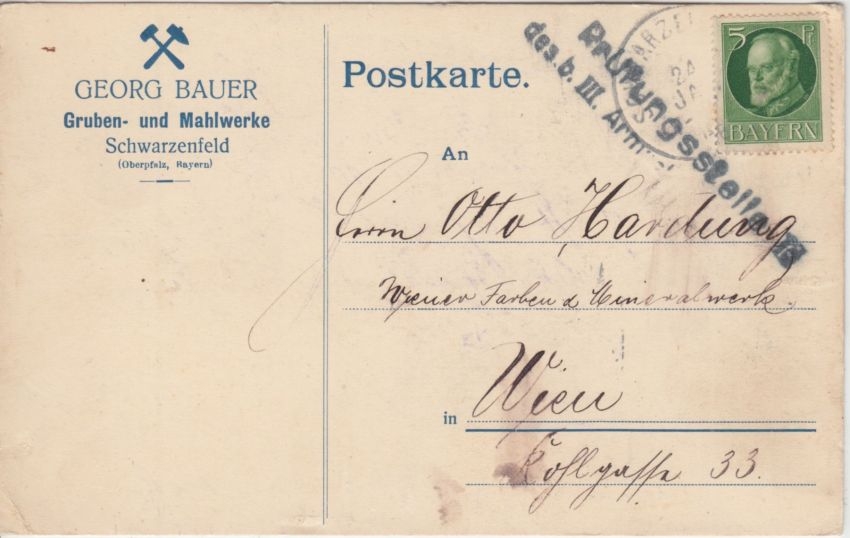 GEORG BAUER
Gruben- und Mahlwerke
Schwarzenfeld
(Oberpfalz, Bayern)
Postkarte.
Prüfungsstelle
des b. III. Arm
5 Pf
BAYERN
24
JA
An
Herrn Otto Hardung
Wiener Farben & Mineralwerk.
in Wien
Kohlgasse 33.